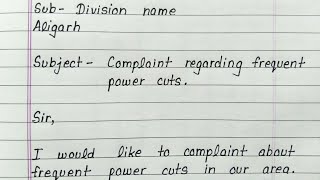 Sub- Division name
Aligarh
Subject- Complaint regarding frequent
power cuts.
Sir,
I would like to complaint about
frequent power cuts in our area.